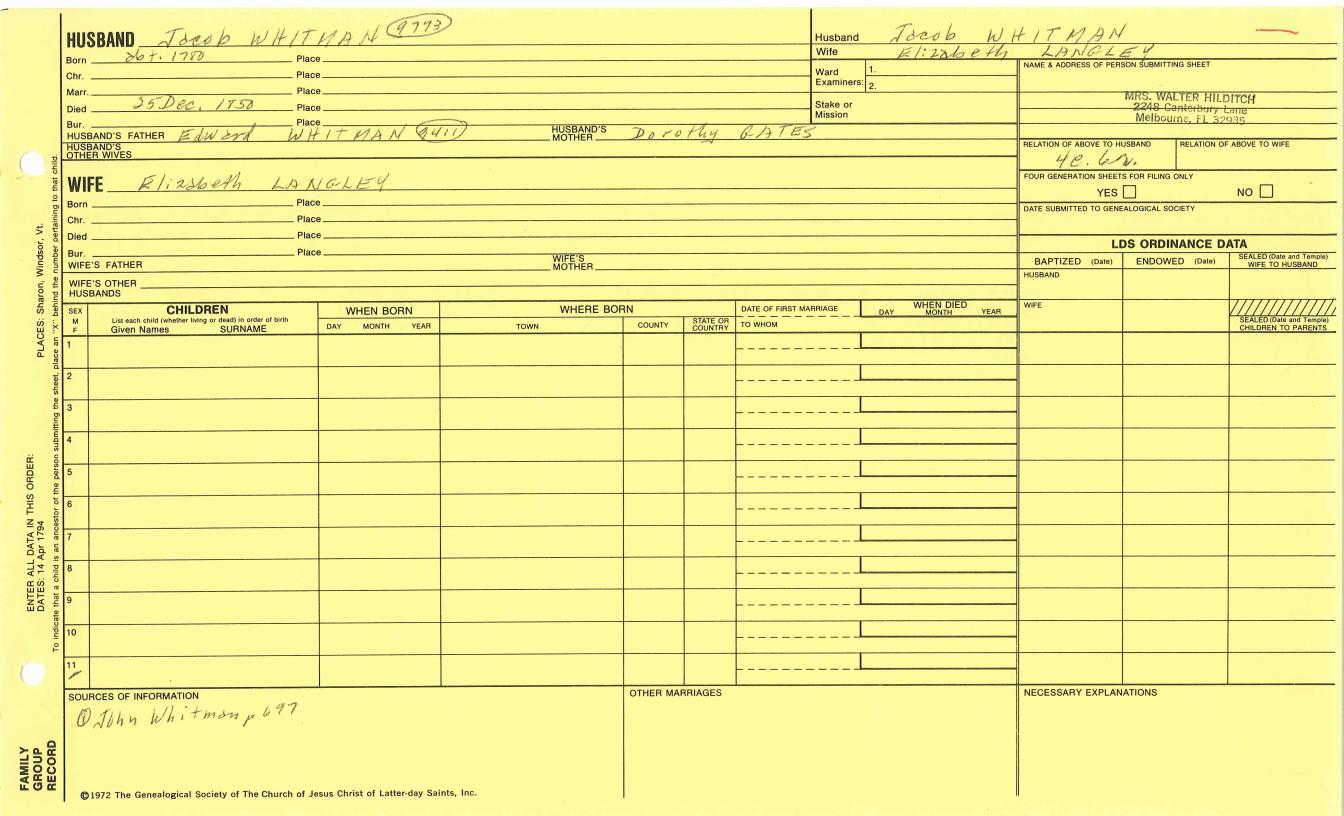 HUSBAND Jacob WHITMAN 9773
Born abt. 1780 Place
Chr. Place
Marr. Place
Died 25 Dec. 1850 Place
Bur. Place
HUSBAND'S FATHER Edward WHITMAN HUSBAND'S MOTHER Dorothy GATES
HUSBAND'S OTHER WIVES
WIFE Elizabeth LANGLEY
Born Place
Chr. Place
Died Place
Bur. Place
WIFE'S FATHER WIFE'S MOTHER
WIFE'S OTHER HUSBANDS
Husband Jacob WHITMAN
Wife Elizabeth LANGLEY
Ward Examiners: 1.
2.
Stake or Mission
NAME & ADDRESS OF PERSON SUBMITTING SHEET
MRS. WALTER HILDITCH
2248 Canterbury Lane
Melbourne, FL 32935
RELATION OF ABOVE TO HUSBAND RELATION OF ABOVE TO WIFE
FOUR GENERATION SHEETS FOR FILING ONLY
YES NO
DATE SUBMITTED TO GENEALOGICAL SOCIETY
LDS ORDINANCE DATA
BAPTIZED (Date) ENDOWED (Date) SEALED (Date and Temple) WIFE TO HUSBAND
HUSBAND
WIFE
SEALED (Date and Temple) CHILDREN TO PARENTS
SEX M F
CHILDREN
List each child (whether living or dead) in order of birth
Given Names SURNAME
WHEN BORN
DAY MONTH YEAR
WHERE BORN
TOWN COUNTY STATE OR COUNTRY
DATE OF FIRST MARRIAGE
TO WHOM
WHEN DIED
DAY MONTH YEAR
1
2
3
4
5
6
7
8
9
10
11
SOURCES OF INFORMATION
① John Whitman p 697
OTHER MARRIAGES
NECESSARY EXPLANATIONS
©1972 The Genealogical Society of The Church of Jesus Christ of Latter-day Saints, Inc.
FAMILY GROUP RECORD
ENTER ALL DATA IN THIS ORDER:
DATES: 14 Apr 1794 PLACES: Sharon, Windsor, Vt.
To indicate that a child is an ancestor of the person submitting the sheet, place an "X" behind the number pertaining to that child.